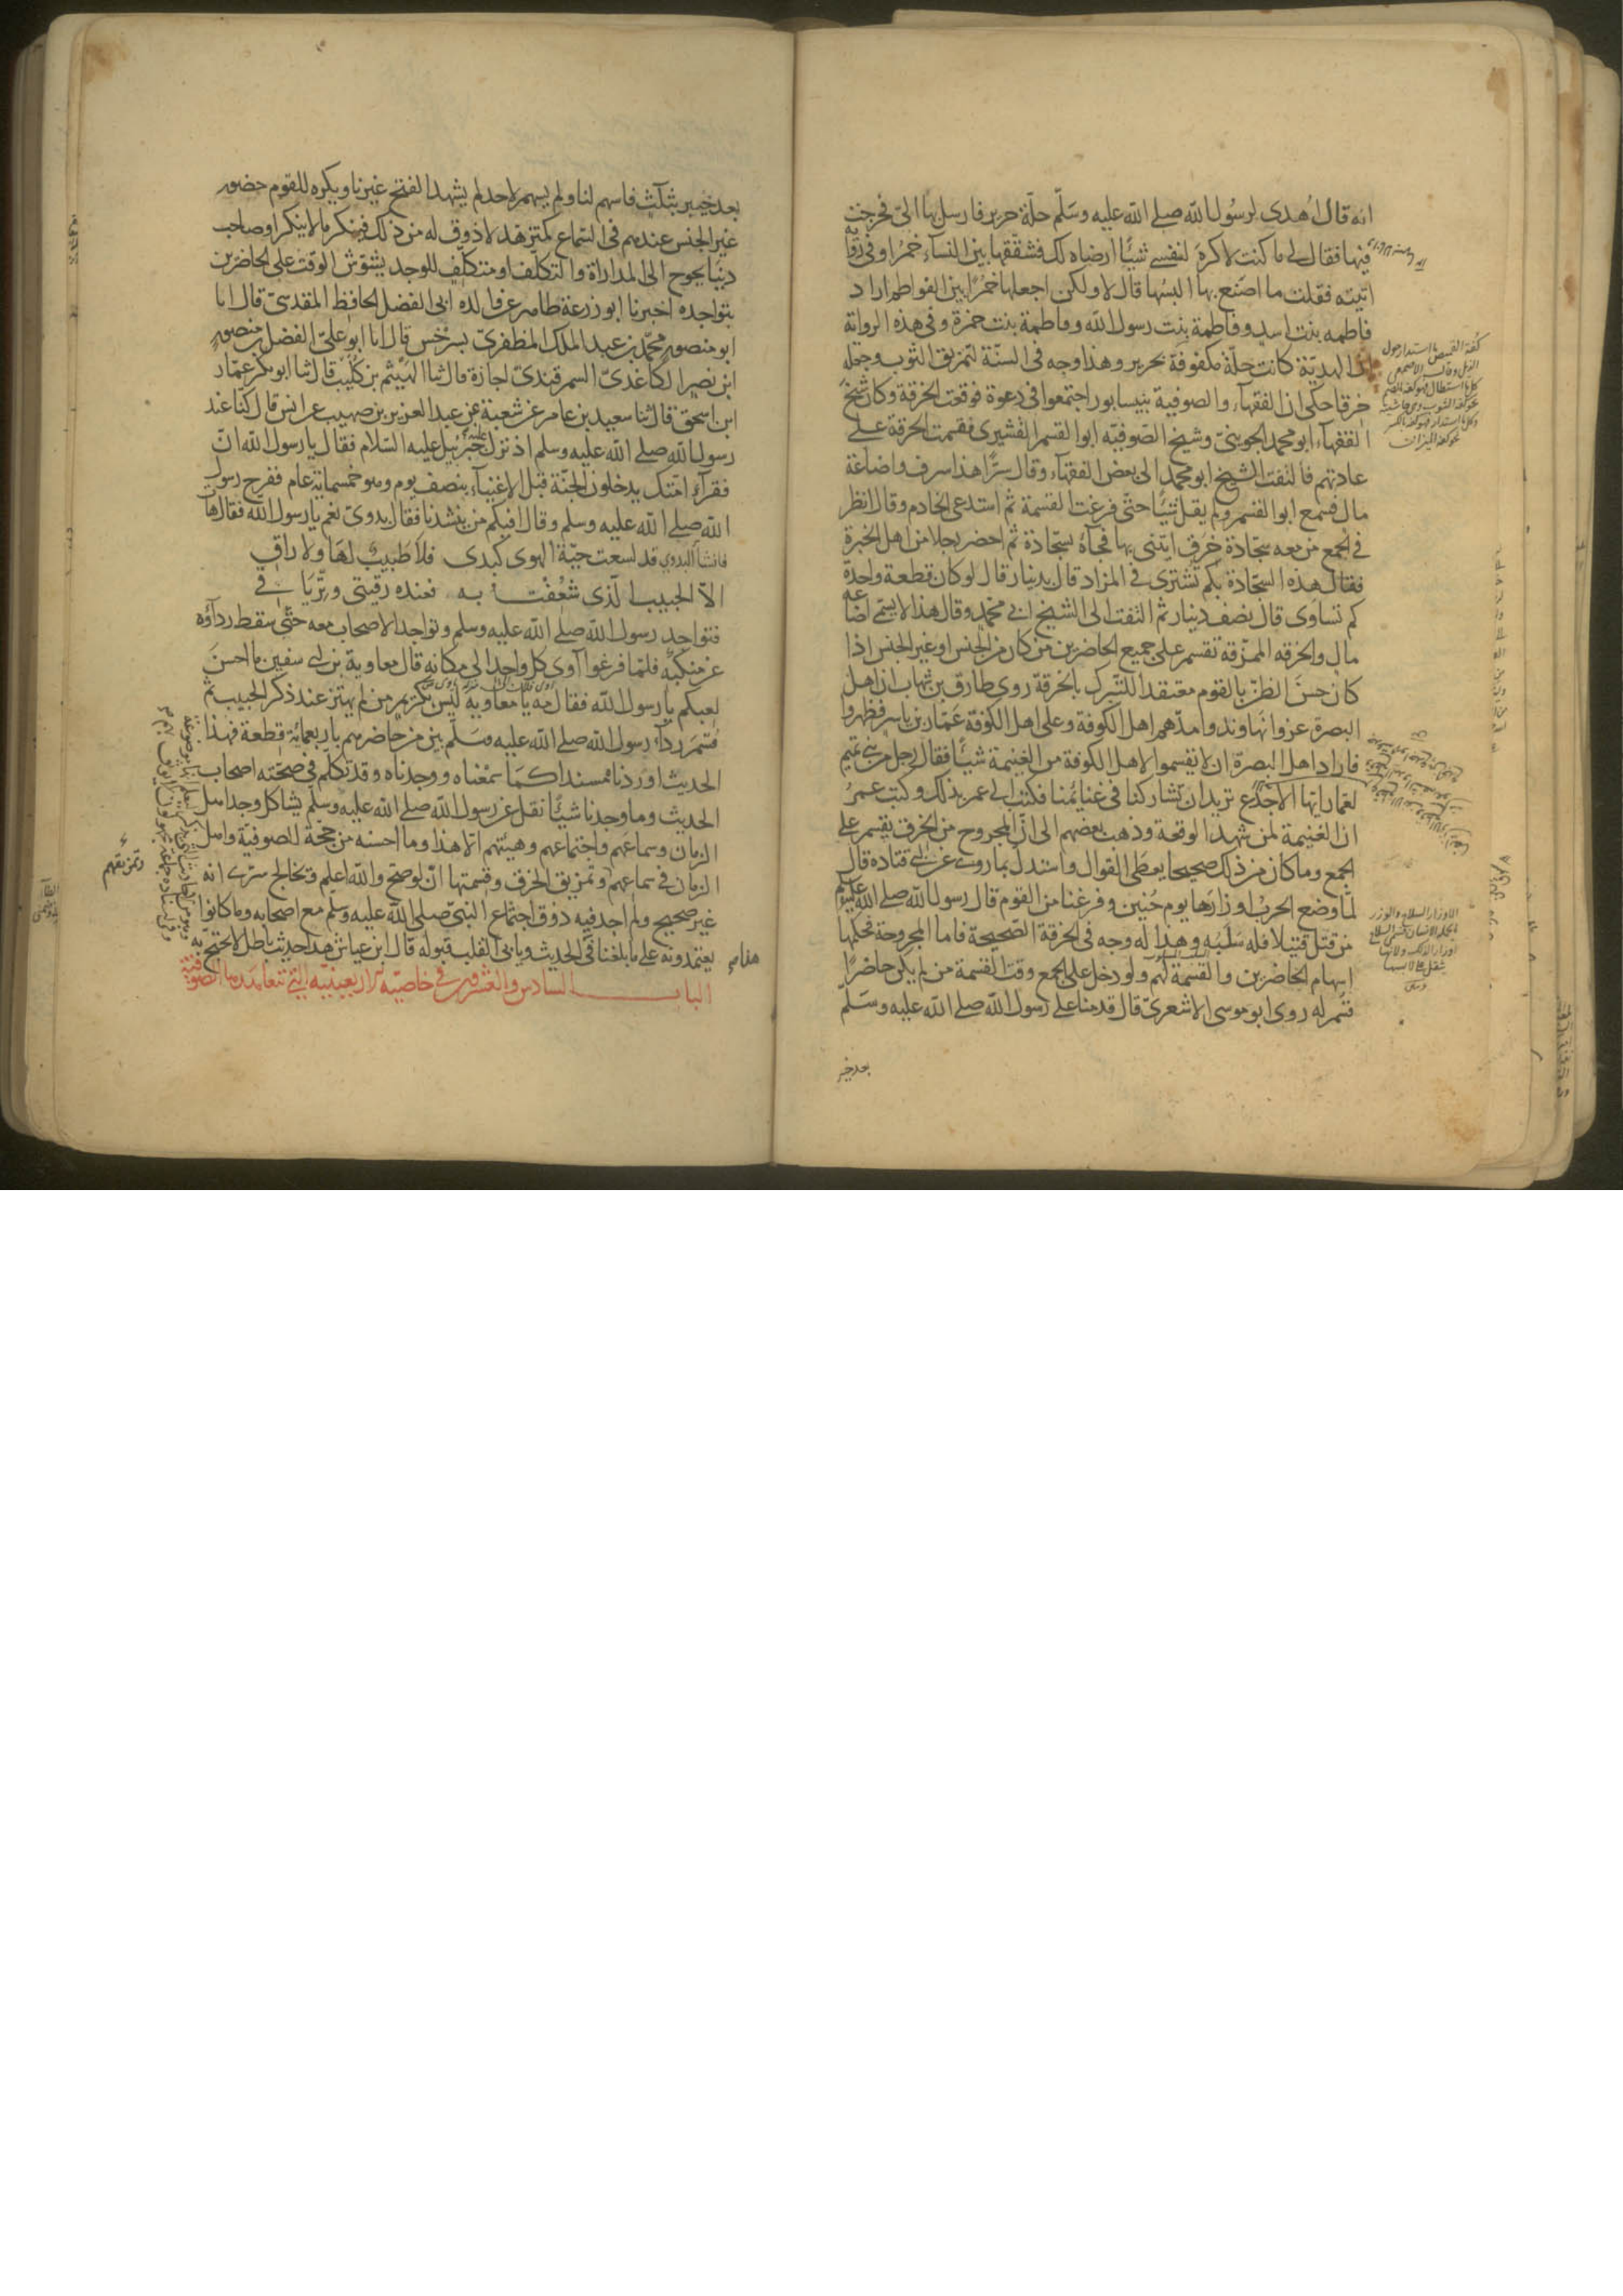 انه قال اُهدى لرسُول الله صلى الله عليه وسَلّم حلّة حرير فارسل بها الىّ فخرجت
فيها فقال لى ما كنت لاكره لنفسى شيئًا ارضاه لك فشقّقها بين النسآء خمُرًا وفى رواية
اتيته فقلت ما اصنع بها البسُها قال لا ولكن اجعلها خمُرًا بين الفواطم اراد
فاطمه بنت اسد وفاطمة بنت رسول الله وفاطمة بنت حمزة وفى هذه الرواية
الهديّة كانت حلّة مكفوفة بحرير وهذا وجه فى السنّة لتمزيق الثوب وجعله
خرقا حكى ان الفقهآء والصوفية بنيسابور اجتمعوا فى دعوة فوقعت الخرقة وكان شيخ
الفقهآء ابو محمد الجوينىّ وشيخ الصّوفيّه ابو القسم القشيرى فقسمت الخرقة على
عادتهم فالتفت الشيخ ابو محمد الى بعض الفقهآء وقال سرًّا هذا سرف واضاعة
مال فسمع ابو القسم ولم يقل شئًا حتّى فرغت القسمة ثم استدعى الخادم وقال انظر
فى الجمع من معه سجّاذة خرق ايتنى بها فجآءه بسجّاذة ثم احضر رجلا من اهل الخبرة
فقال هذه السجّاذة بكم تشترى فى المزاد قال بدينار قال لو كان قطعة واحدة
كم تساوى قال نصف دينار ثم التفت الى الشيخ ابى محمد وقال هذا لا يسمّى اضاعه
مال والخرقه الممزّقة تقسم على جميع الحاضرين من كان من الجنس او غير الجنس اذا
كان حسن الظنّ بالقوم معتقدا للتبرّك بالخرقة روى طارق بن شهاب ان اهل
البصرة غزوا نهاوند وامدّهم اهل الكوفة وعلى اهل الكوفة عمّار بن ياسر فظهروا
فاراد اهل البصرة ان لا يقسموا لاهل الكوفة من الغنيمة شيئًا فقال رجل من بنى تميم
لعمّار ايّها الاجدع تريد ان تشاركنا فى غنايمنا فكتب الى عمر بذلك وكتب عمرُ
ان الغنيمة لمن شهد الوقعة وذهب بعضهم الى انّ المجروح من الخرق يقسم على
الجمع وما كان من ذلك صحيحا يعطى القوال واستدلّ بما روى عن ابى قتادة قال
لمّا وضع الحربُ اوزارها يوم حُنين وفرغنا من القوم قال رسول الله صلى الله عليه وسلم
من قتل قتيلا فله سَلَبُه وهذا له وجه فى الخرقة الصّحيحة فاما المجروحة فحكمها
اسهام الحاضرين والقسمة لهم ولو دخل على الجمع وقت القسمة من لم يكن حاضرًا
قسم له روى ابو موسى الاشعرىّ قال قدمنا على رسول الله صلى الله عليه وسَلّم
بعد خيبر
بعد خيبر بثلث فاسهم لنا ولم يسهم لاحد لم يشهد الفتح غيرنا ويكره للقوم حضور
غير الجنس عندهم فى السّماع كمتزهّد لا ذوق له من ذلك فينكر ما لا ينكر او صاحب
دنيا يحوج الى المداراة والتكلّف او متكلّف للوجد يشوّش الوقت على الحاضرين
بتواجده اخبرنا ابو زرعة طاهر عن والده ابى الفضل الحافظ المقدسىّ قال انا
ابو منصور محمّد بن عبد الملك المظفرىّ بسرخس قال انا ابو علىّ الفضل بن منصور
ابن نصر الكاغدىّ السمرقندىّ اجازة قال ثنا الهيثم بن كُليب قال ثنا ابو بكر عمّار
ابن اسحق قال ثنا سعيد بن عامر عن شعبة عن عبد العزيز بن صهيب عن انس قال كنّا عند
رسول الله صلى الله عليه وسلم اذ نزل عليه جبرئيل عليه السّلام فقال يا رسول الله انّ
فقرآء امّتك يدخلون الجنّة قبل الاغنيآء بنصف يوم وهو خمسمائة عام ففرح رسول
الله صلى الله عليه وسلم وقال افيكم من ينشدنا فقال بدوىّ نعم يا رسول الله فقال هات
فانشأ البدوي قد لسعت حيّة الهوى كبدى فلا طبيب لها ولا راقى
الاّ الحبيب الّذى شغفت به فعنده رقيتى وترياقى
فتواجد رسول الله صلى الله عليه وسلم وتواجد الاصحاب معه حتّى سقط ردآؤه
عن منكبيه فلمّا فرغوا آوى كل واحد الى مكانه قال معاوية بن ابى سفين ما احسن
لعبكم يا رسول الله فقال مه يا معاوية ليس بكريم من لم يهتز عند ذكر الحبيب ثم
قسّم ردآءه رسول الله صلى الله عليه وسَلّم بين من حاضرهم باربعمائة قطعة فهذا
الحديث اوردناه مسندا كما سمعناه ووجدناه وقد تكلّم فى صحّته اصحاب
الحديث وما وجدنا شيئًا نقل عن رسول الله صلى الله عليه وسلّم يشاكل وجد اهل
الزمان وسماعهم واجتماعهم وهيئتهم الا هذا وما احسنه من حجّة للصوفيّة واهل
الزمان فى سماعهم وتمزيق الخرق وقسمتها انّ لو صحّ والله اعلم ويخالج سرّى انه
غير صحيح ولم اجد فيه ذوق اجتماع النبىّ صلى الله عليه وسلّم مع اصحابه وما كانوا
يعتمدونه على ما بلغنا فى الحديث ويابى القلب قبوله
الباب السادس والعشرون فى خاصيّة الاربعينيّة التى تتعاهدها الصّوفيّة
وتمزيقهم